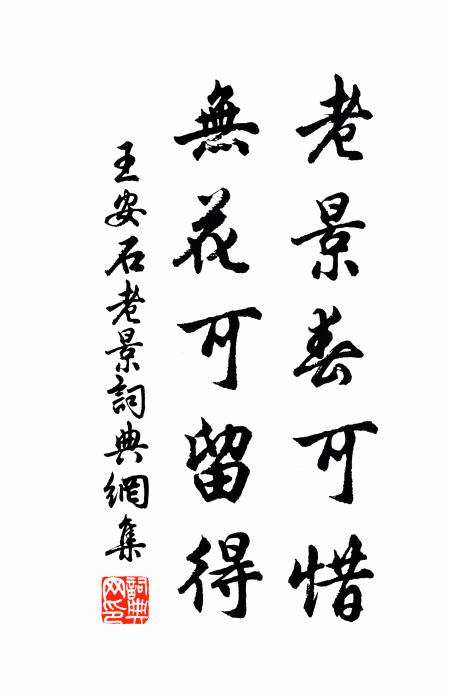 老景春可惜
無花可留得
王安石老景詞典網集
詞典網印